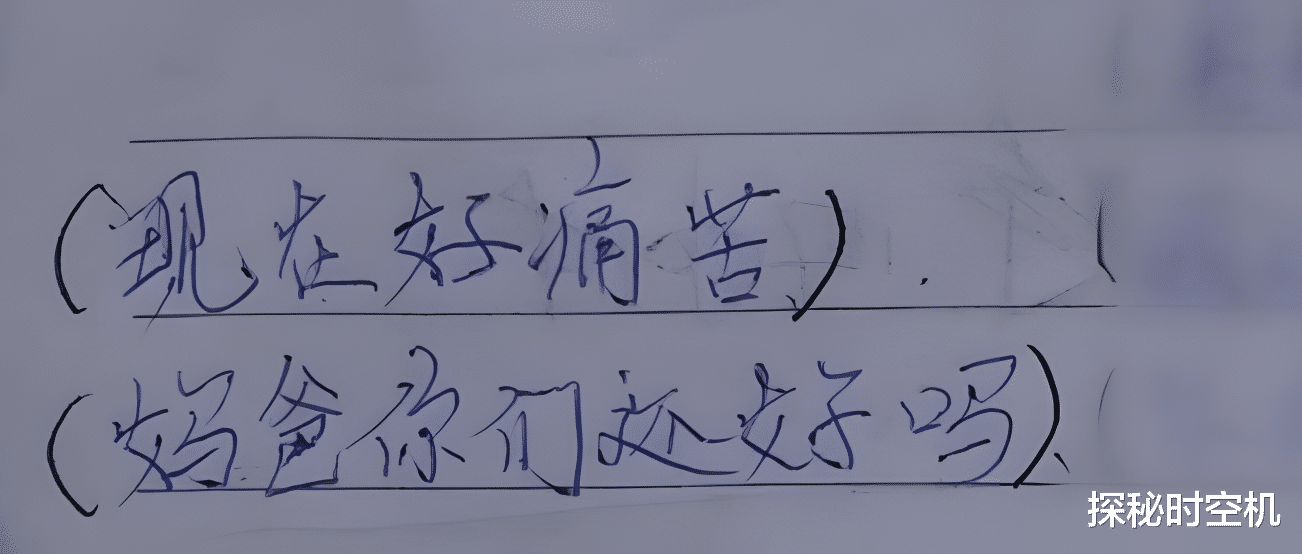 (现在好痛苦).
(妈爸你们还好吗)、
探秘时空机